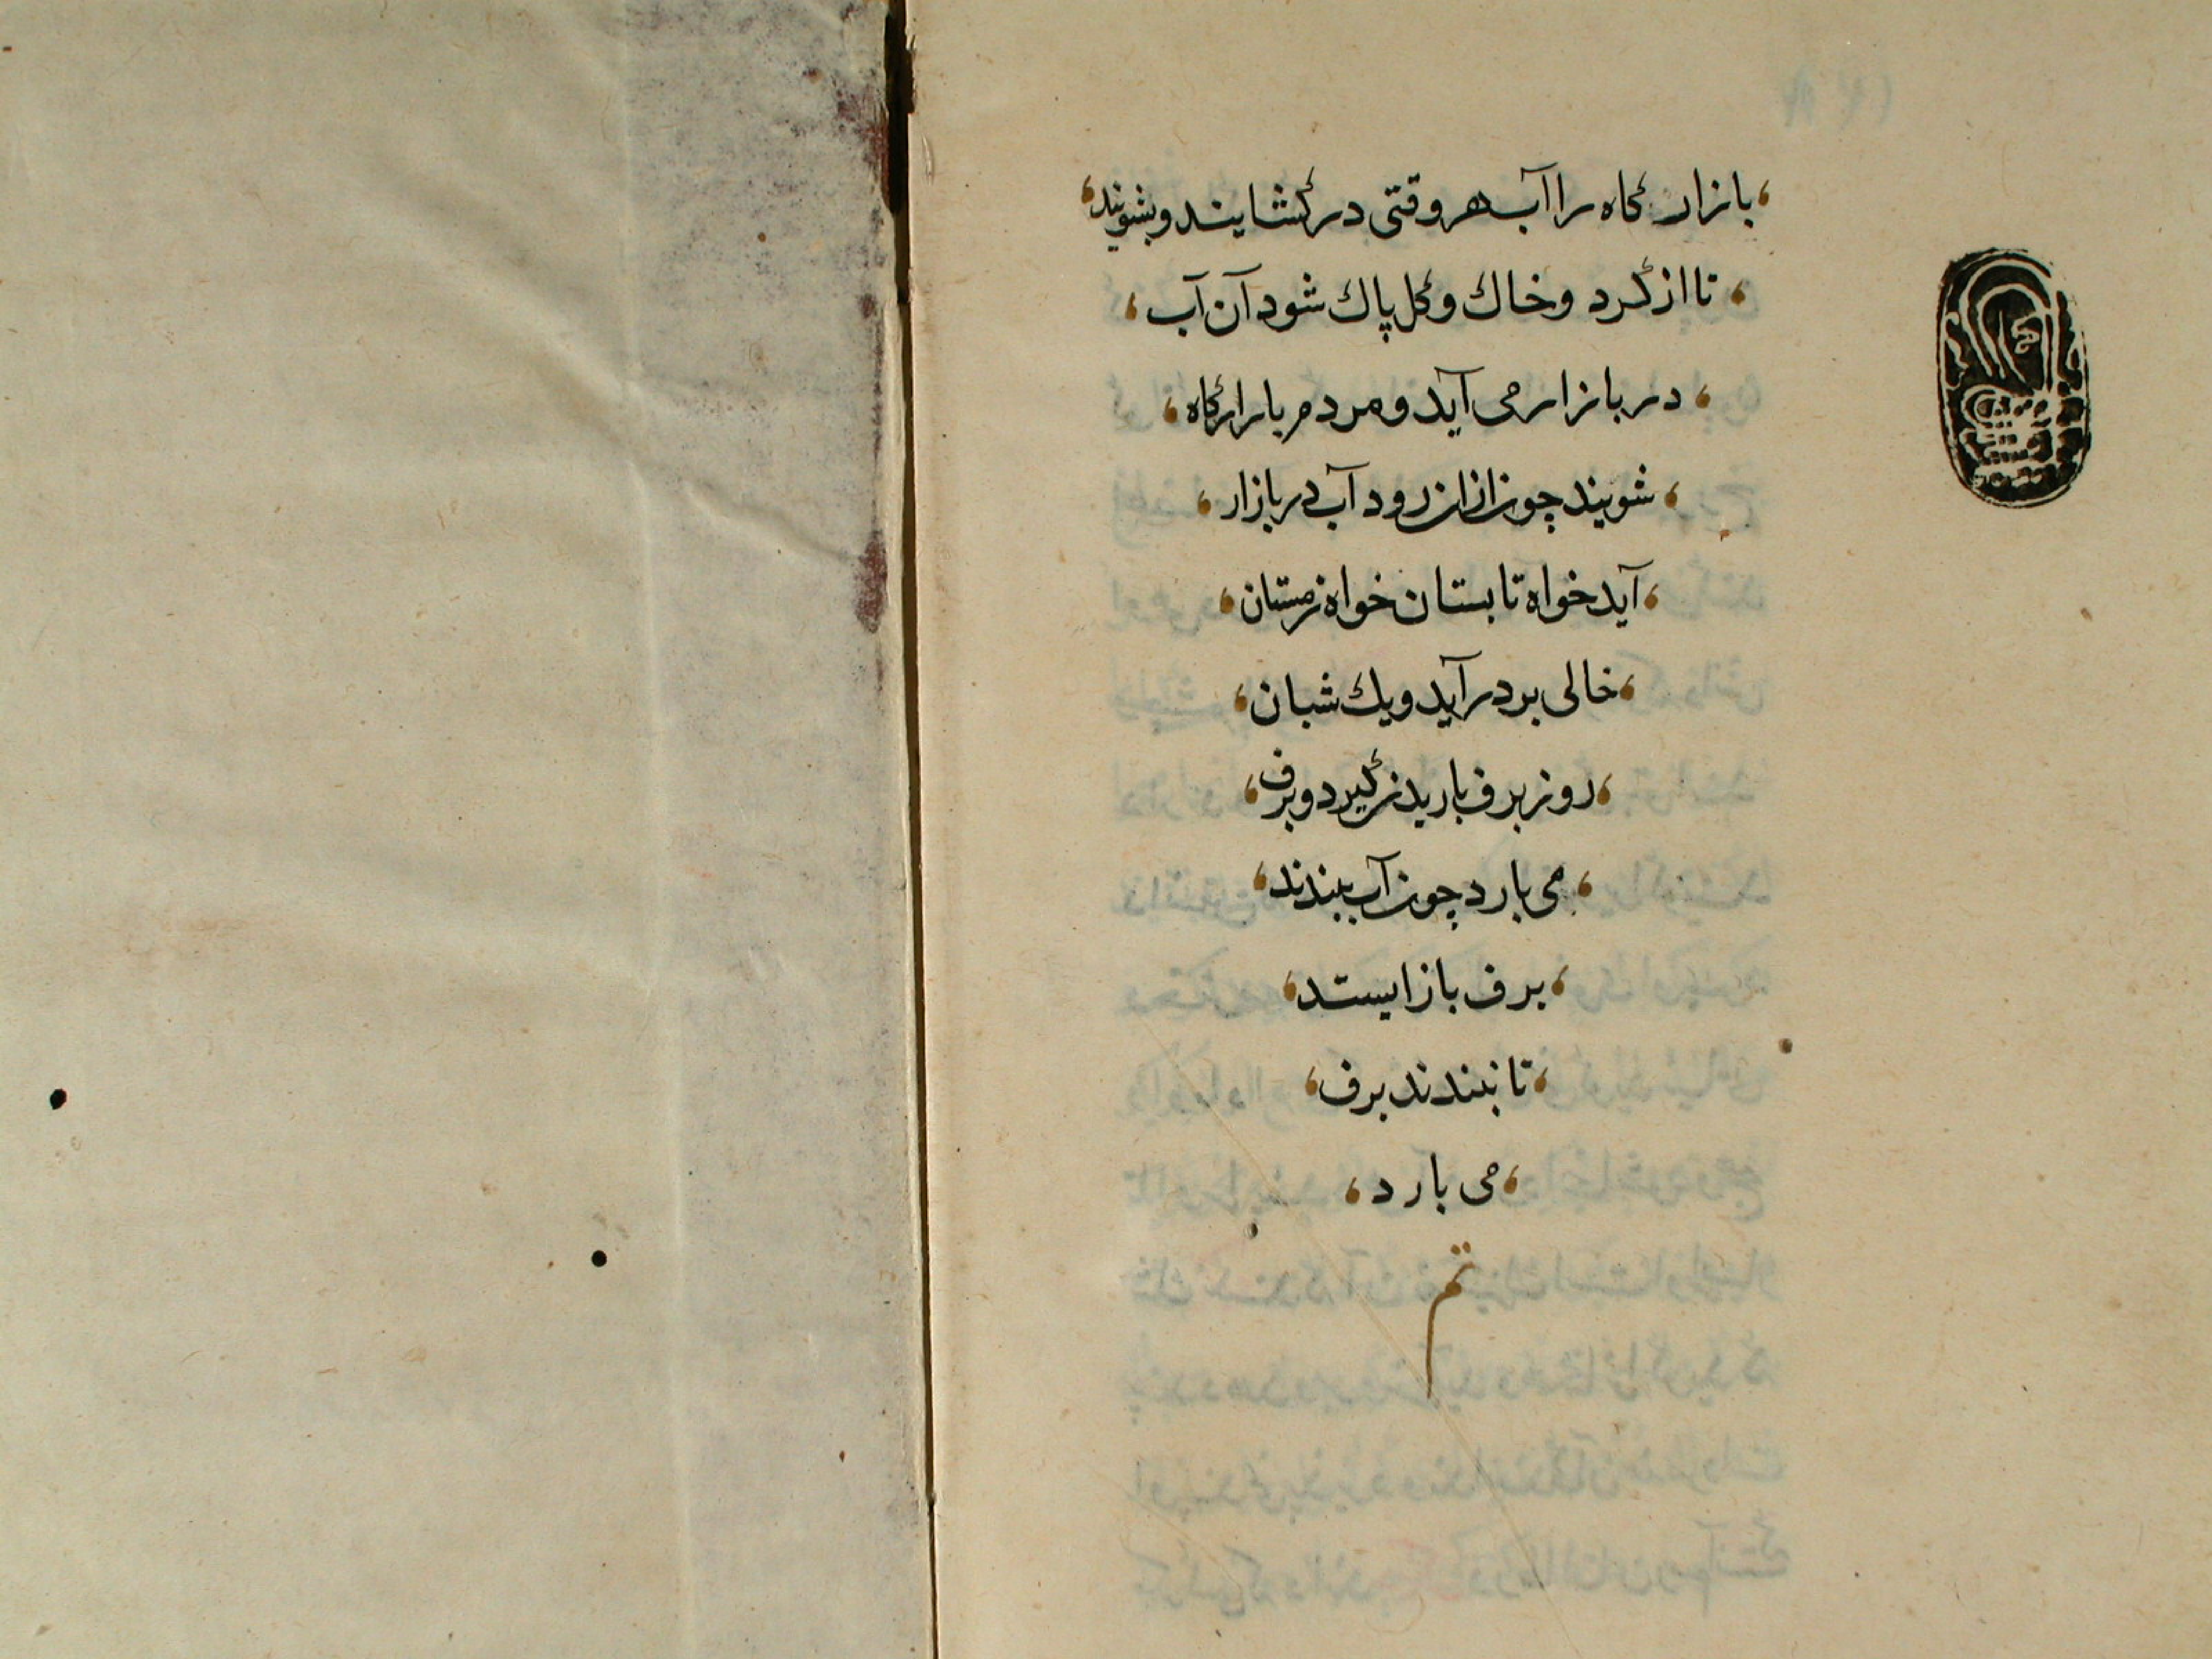 بازار کاه را آب هر وقتی در کشایند و بشویند
تا از کرد و خاك و کل پاك شود آن آب
در بازار می آید و مردم بازار کاه
شویند چون ازان رود آب در بازار
آید خواه تابستان خواه زمستان
خالی بر در آید و یك شبان
روز برف باریدن کیرد و برف
می بارد چون آب ببندند
برف باز ایستد
تا نبندند برف
می بارد
تم